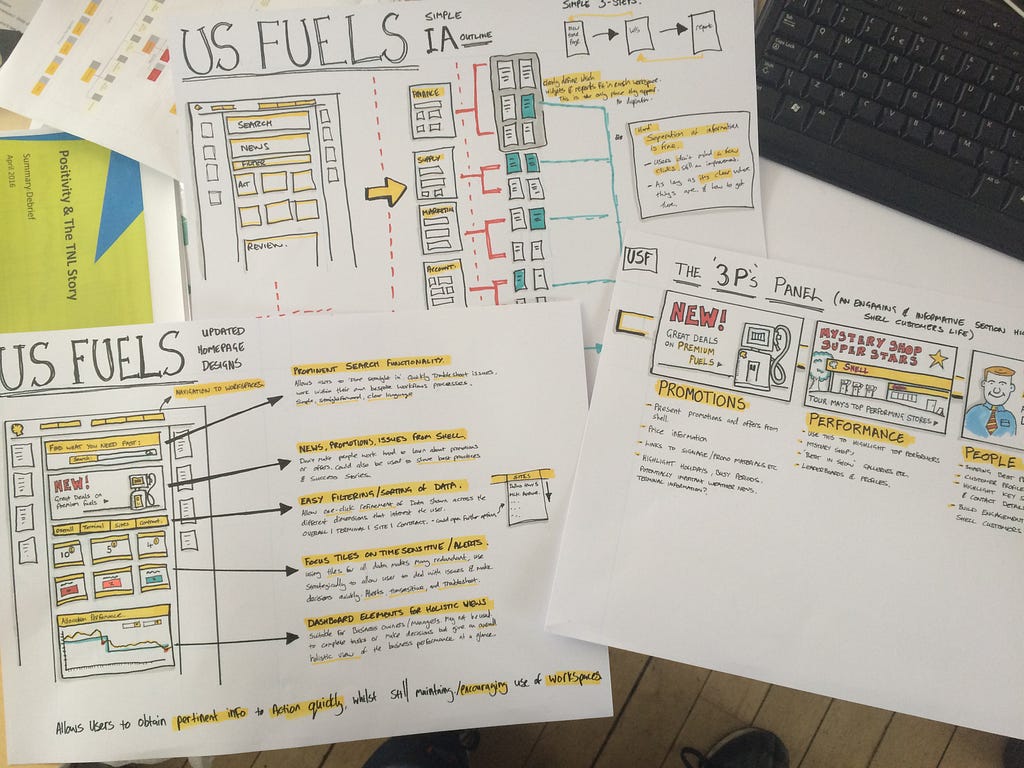 US FUELS
SIMPLE
IA OUTLINE
SEARCH
NEWS
FILTER
ACT
REVIEW.
FINANCE
SUPPLY
MARKETING
ACCOUNT.
SIMPLE 3-STEPS.
reports
clearly define which
widgets & reports fit in each workspace.
This is the only place they appear
no duplication.
Separation of information
is fine.
- Users don't mind a few
clicks, still an improvement.
- As long as it's clear where
things are, & how to get
there.
Positivity & The TNL Story
Summary Debrief
April 2016
US FUELS
UPDATED
HOMEPAGE
DESIGNS
NAVIGATION TO WORKSPACES.
FIND WHAT YOU NEED FAST:
Search:
NEW!
Great Deals on
Premium fuels
Overall
Terminal
Sites
Contract.
10
5
4
Allocation Performance
PROMINENT SEARCH FUNCTIONALITY.
Allows users to 'dive straight in'. Quickly Troubleshoot issues,
work within their own bespoke workflows processes.
Simple, straightforward, clear language
NEWS, PROMOTIONS, ISSUES FROM SHELL.
Don't make people work hard to learn about promotions
or offers. could also be used to share best practices
& Success Stories.
EASY FILTERING/SORTING OF DATA.
Allow one-click refinement of Data shown across the
different dimensions that interest the user.
OVERALL | TERMINAL | SITE | CONTRACT. - could open further options
SITES
FOCUS TILES ON TIME SENSITIVE / ALERTS.
Using tiles for all data makes many redundant, use
strategically to allow user to deal with issues & make
decisions quickly. Alerts, Time sensitive, and Troubleshoot.
DASHBOARD ELEMENTS FOR HOLISTIC VIEWS
Suitable for Business owners/Managers. May not be used
to complete tasks or make decisions but give an overall
holistic view of the business performance at a glance.
Allows Users to obtain pertinent info to Action quickly, whilst still maintaining/encouraging use of workspaces
USF
THE '3P's PANEL (AN ENGAGING & INFORMATIVE SECTION
SHELL CUSTOMERS LIFE)
NEW!
GREAT DEALS
ON PREMIUM
FUELS
MYSTERY SHOP
SUPER STARS
SHELL
TOUR MAY'S TOP PERFORMING STORES
PROMOTIONS
- Present promotions and offers from
shell.
- Price information
- LINKS TO SIGNAGE / PROMO MATERIALS ETC
- HIGHLIGHT HOLIDAYS, BUSY PERIODS.
POTENTIALLY IMPORTANT WEATHER NEWS.
TERMINAL INFORMATION?
PERFORMANCE
- USE THIS TO HIGHLIGHT TOP PERFORMERS
- MYSTERY SHOP,
- 'BEST IN SHOW' GALLERIES ETC.
- LEADERBOARDS & PROFILES.
PEOPLE
- SHARING BEST
- CUSTOMER PROFILES
- HIGHLIGHT KEY
& CONTACT DETAILS
- BUILD ENGAGEMENT
SHELL CUSTOMERS